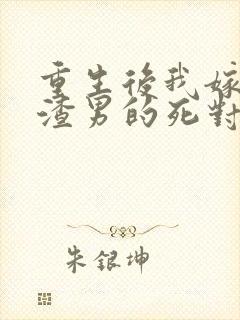 重生後我嫁
渣男的死對
朱銀坤